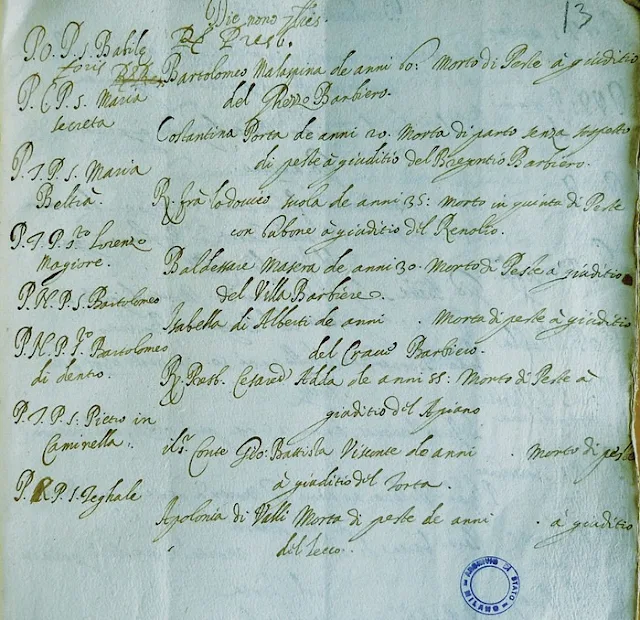 Die nono
13
P.O. P. s. Babile
foris
Bartolomeo Malaspina de anni 60: Morto di Peste à giuditio
del Ghezzo Barbiero.
P. C. P. s. Maria
secreta
Costantina Porta de anni 20. Morta di parto senza sospetto
di peste à giuditio del Barbiero.
P. T. P. s. Maria
Beltrà.
R. frà lodovico de anni 35: Morto in quinta di Peste
con bubone à giuditio del
P. T. P. s.to Lorenzo
Magiore.
Baldessare Masera de anni 30. Morto di Peste à giuditio
del Villa Barbiere.
P. N. P. s. Bartolomeo
Isabella di Alberti de anni . Morta di peste à giuditio
del Barbiero.
P. N. P. s.to Bartolomeo
di dentro.
R. Presb. Cesare d Adda de anni 55: Morto di Peste à
giuditio del Apiano
P. T. P. s: Pietro in
Caminella.
ils.r Conte Gio: Battista Visconte de anni . Morto di peste
à giuditio del Torta.
P. P. s.
Apolonia di Valli Morta di peste de anni . à giuditio
del Lecco.
ARCHIVIO DI STATO
MILANO